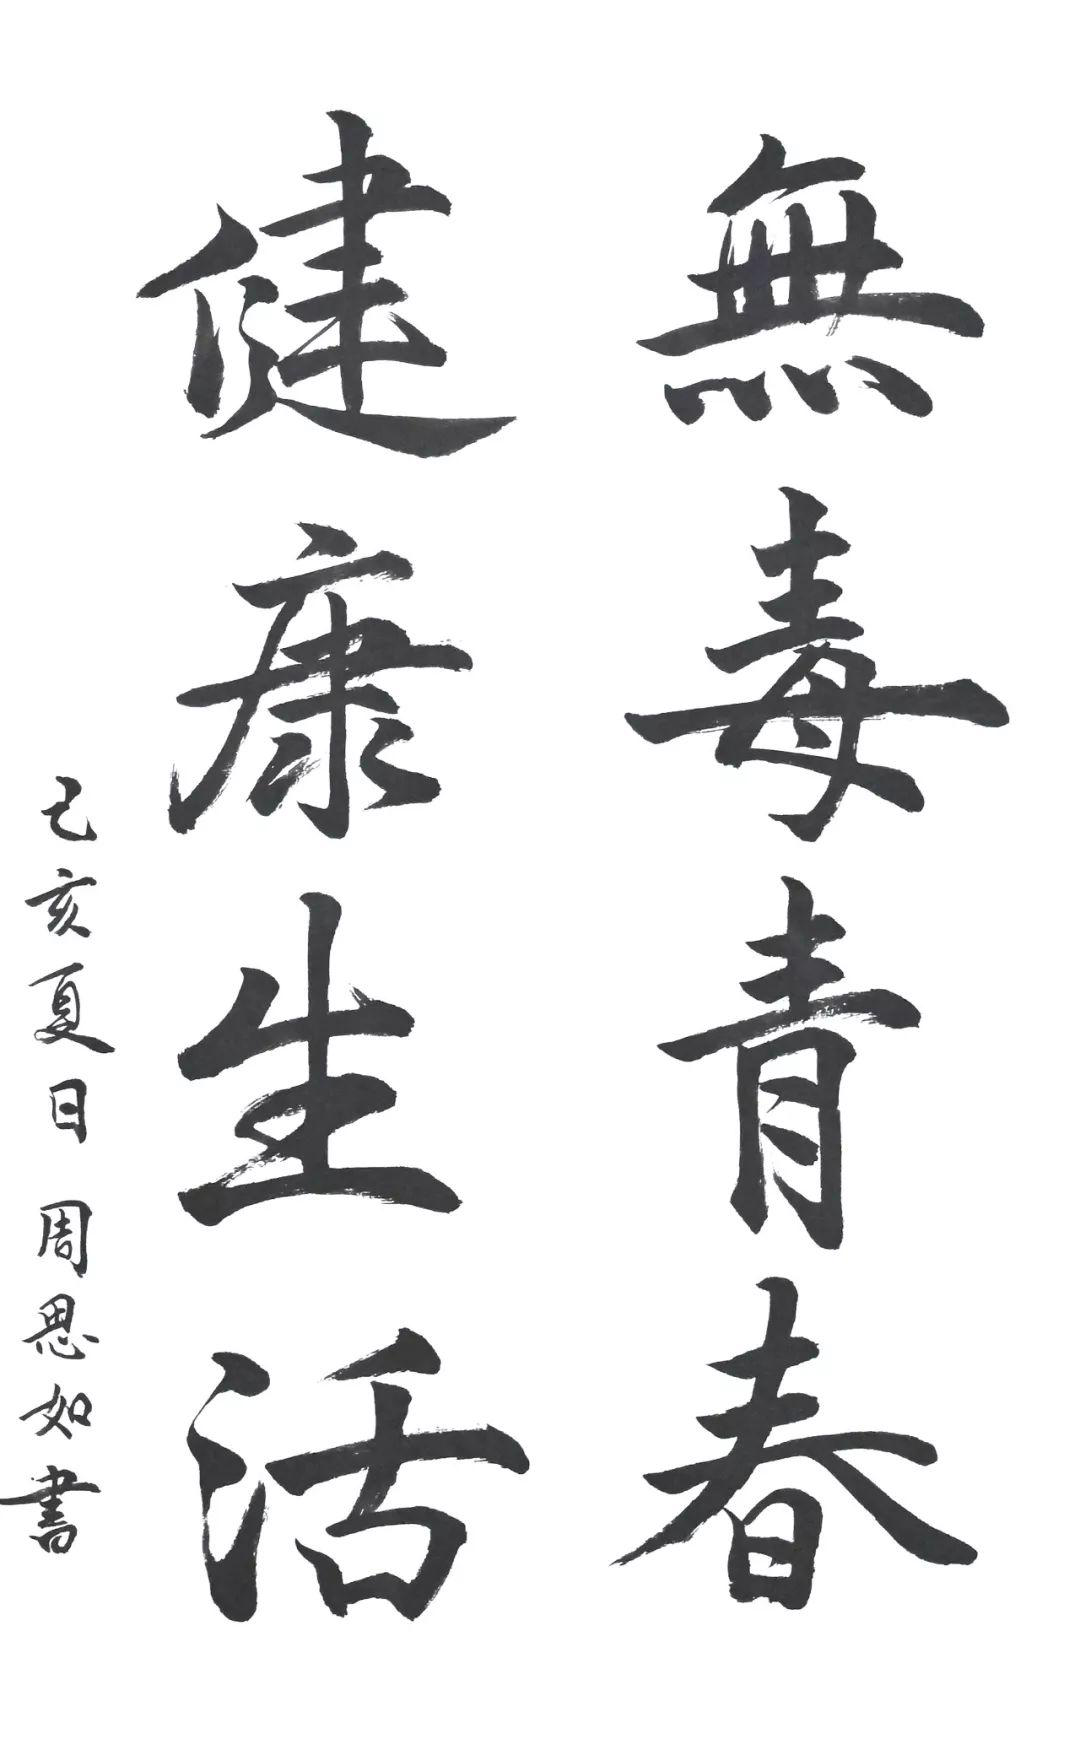 無毒青春
健康生活
己亥夏日 周思如書